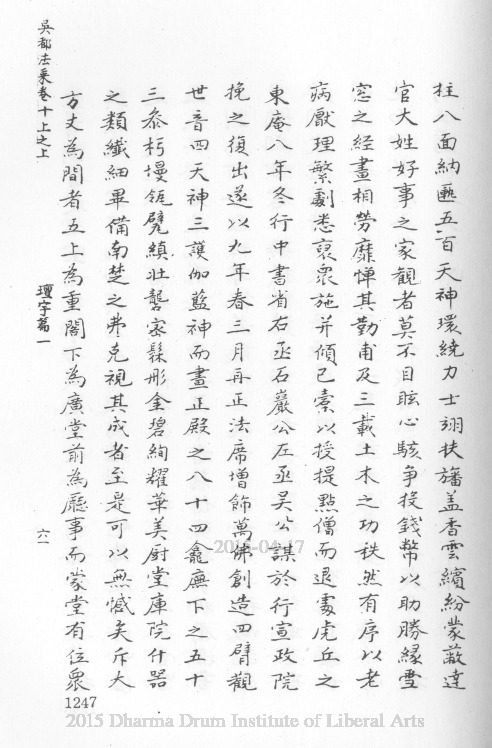 柱八面納匭五百天神環繞力士翊扶旛盖香雲繽紛蒙蔽達
官大姓好事之家觀者莫不目眩心駭争投錢幣以助勝緣雪
窓之經畫相勞靡憚其勤甫及三載土木之功秩然有序以老
病厭理繁劇悉裒衆施并傾已橐以授提點僧而退䖏虎丘之
東庵八年冬行中書省右丞石巖公左丞吴公謀於行宣政院
挽之復出遂以九年春三月再正法席增飾萬佛創造四臂觀
世音四天神三護伽藍神而畫正殿之八十四龕廡下之五十
三叅杇墁瓴甓縝壯礱密髹彤金碧絢耀華美厨堂庫院什器
之類纖細畢備南楚之弗克視其成者至是可以無憾矣斥大
方丈為間者五上為重閣下為廣堂前為廳事而蒙堂有位衆
吳都法乘卷十上之上
壇宇篇一
六一
1247
2015-04-17
2015 Dharma Drum Institute of Liberal Arts